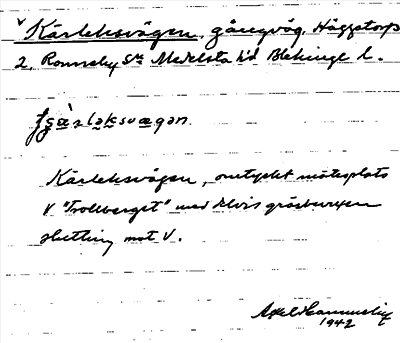 v Kärleksvägen, gångväg, Häggatorp
2, Ronneby sn Medelsta hd Blekinge l.
Kärleksvägen, omtyckt mötesplats
V "Trollberget" med delvis gräsbevuxen
sluttning mot V.
1942